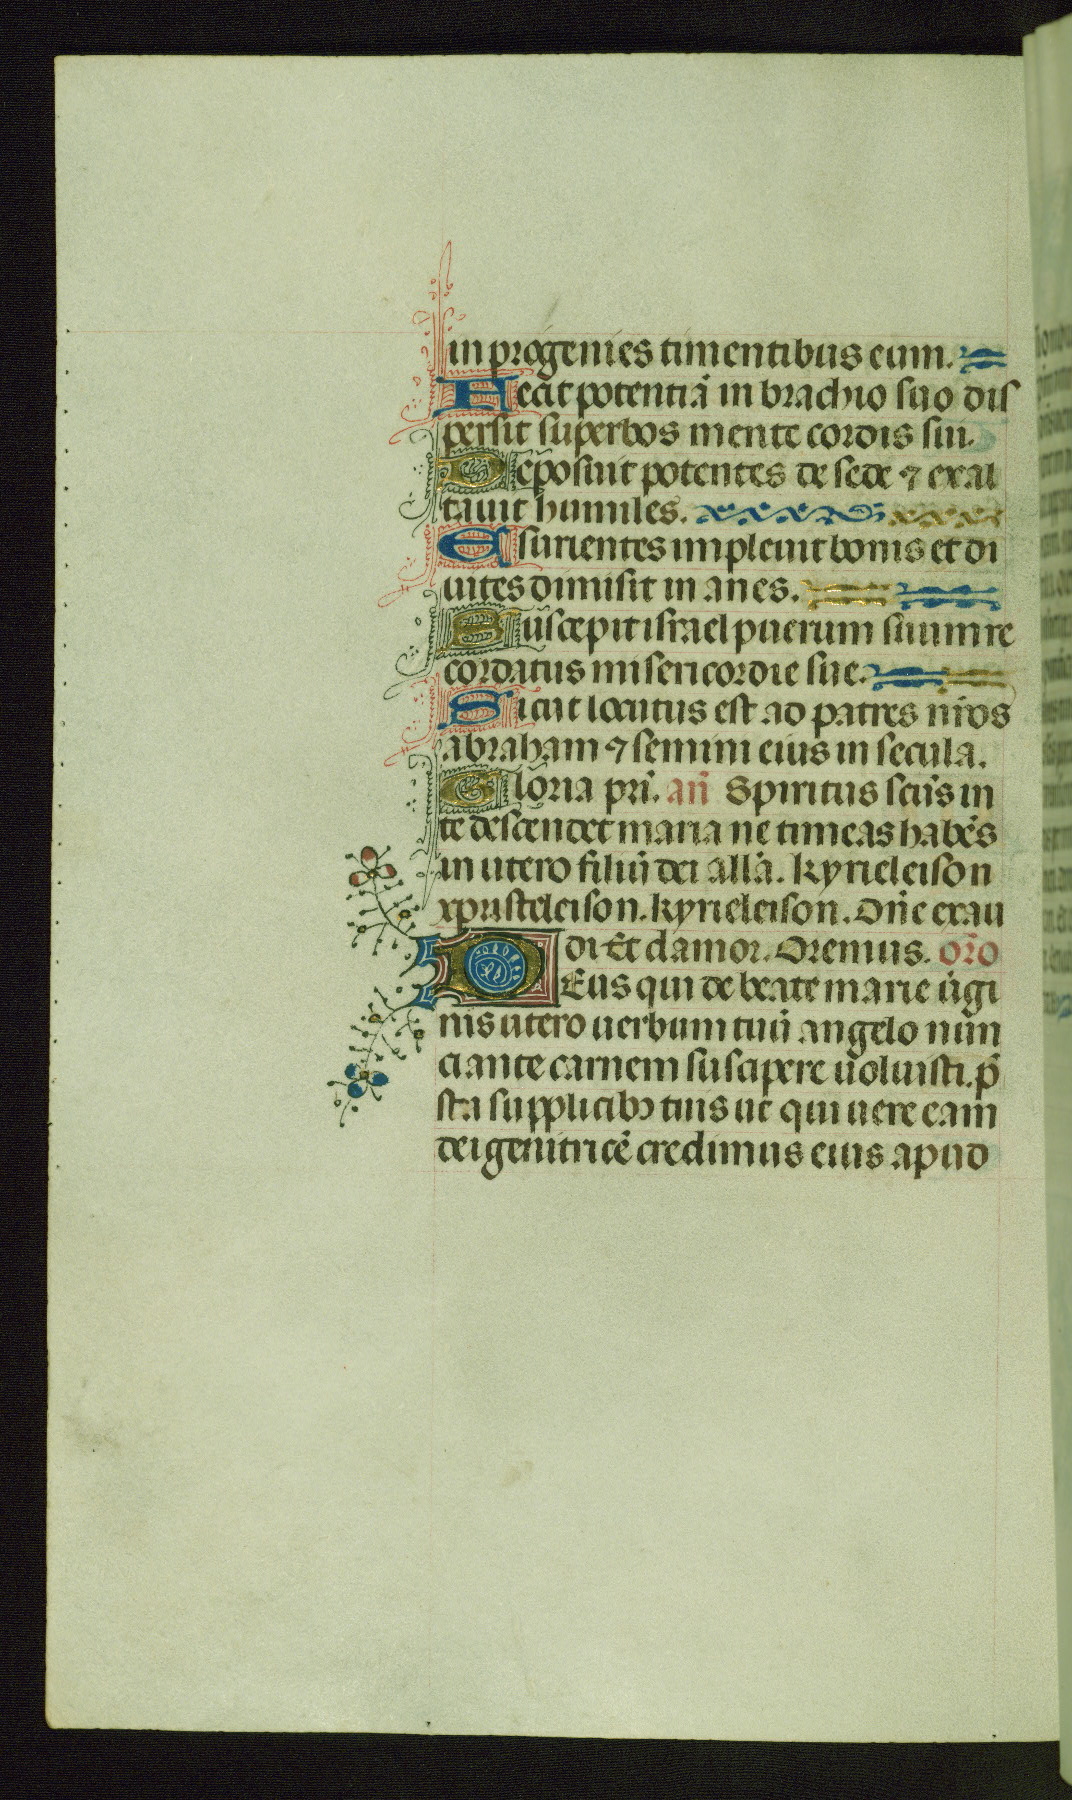 in progenies timentibus eum.
Fecit potentiā in brachio suo dis
persit superbos mente cordis sui.
Deposuit potentes de sede ⁊ exal
tauit humiles.
Esurientes impleuit bonis et di
uites dimisit in anes.
Suscepit israel puerum suum re
cordatus misericordie sue.
Sicut locutus est ad patres nr̄os
abraham ⁊ semini eius in secula.
Gloria pr̄i. an̄ Spiritus scūs in
te descendet maria ne timeas habēs
in utero filiū dei all̄a. kyrieleison
xpristeleison. kyrieleison. Dn̄e exau
di Et clamor. Oremus. or̄o
DEus qui de beate marie ūgi
nis utero uerbum tuū angelo nun
ciante carnem suscipere uoluisti. p̄
sta supplicibꝫ tuis ut qui uere eam
dei genitricē credimus eius apud